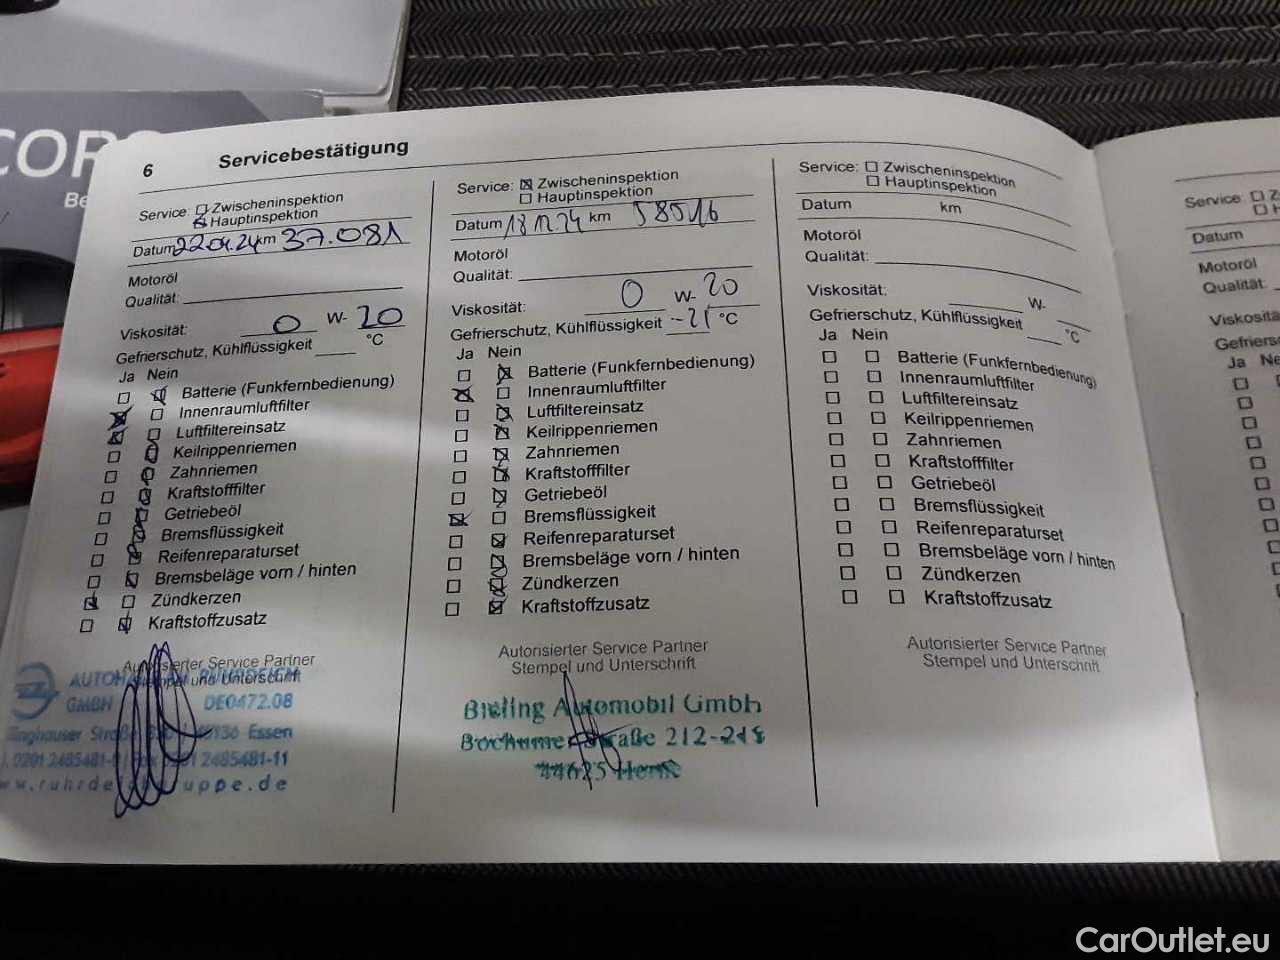 6 Servicebestätigung
Service: Zwischeninspektion
Hauptinspektion
Datum 22.04.24 km 37.081
Motoröl
Qualität:
Viskosität: 0 W- 20
Gefrierschutz, Kühlflüssigkeit °C
Ja Nein
Batterie (Funkfernbedienung)
Innenraumluftfilter
Luftfiltereinsatz
Keilrippenriemen
Zahnriemen
Kraftstofffilter
Getriebeöl
Bremsflüssigkeit
Reifenreparaturset
Bremsbeläge vorn / hinten
Zündkerzen
Kraftstoffzusatz
Autorisierter Service Partner
Stempel und Unterschrift
GMBH DE0472.08
Essen
2485481-11
Service: Zwischeninspektion
Hauptinspektion
Datum 18.12.24 km 58516
Motoröl
Qualität:
Viskosität: 0 W- 20
Gefrierschutz, Kühlflüssigkeit -21 °C
Ja Nein
Batterie (Funkfernbedienung)
Innenraumluftfilter
Luftfiltereinsatz
Keilrippenriemen
Zahnriemen
Kraftstofffilter
Getriebeöl
Bremsflüssigkeit
Reifenreparaturset
Bremsbeläge vorn / hinten
Zündkerzen
Kraftstoffzusatz
Autorisierter Service Partner
Stempel und Unterschrift
Bieling Automobil Gmbh
Bochumer Straße 212-218
44625 Herne
Service: Zwischeninspektion
Hauptinspektion
Datum km
Motoröl
Qualität:
Viskosität: W-
Gefrierschutz, Kühlflüssigkeit °C
Ja Nein
Batterie (Funkfernbedienung)
Innenraumluftfilter
Luftfiltereinsatz
Keilrippenriemen
Zahnriemen
Kraftstofffilter
Getriebeöl
Bremsflüssigkeit
Reifenreparaturset
Bremsbeläge vorn / hinten
Zündkerzen
Kraftstoffzusatz
Autorisierter Service Partner
Stempel und Unterschrift
Service:
Datum
Motoröl
Qualität:
Ja
CarOutlet.eu